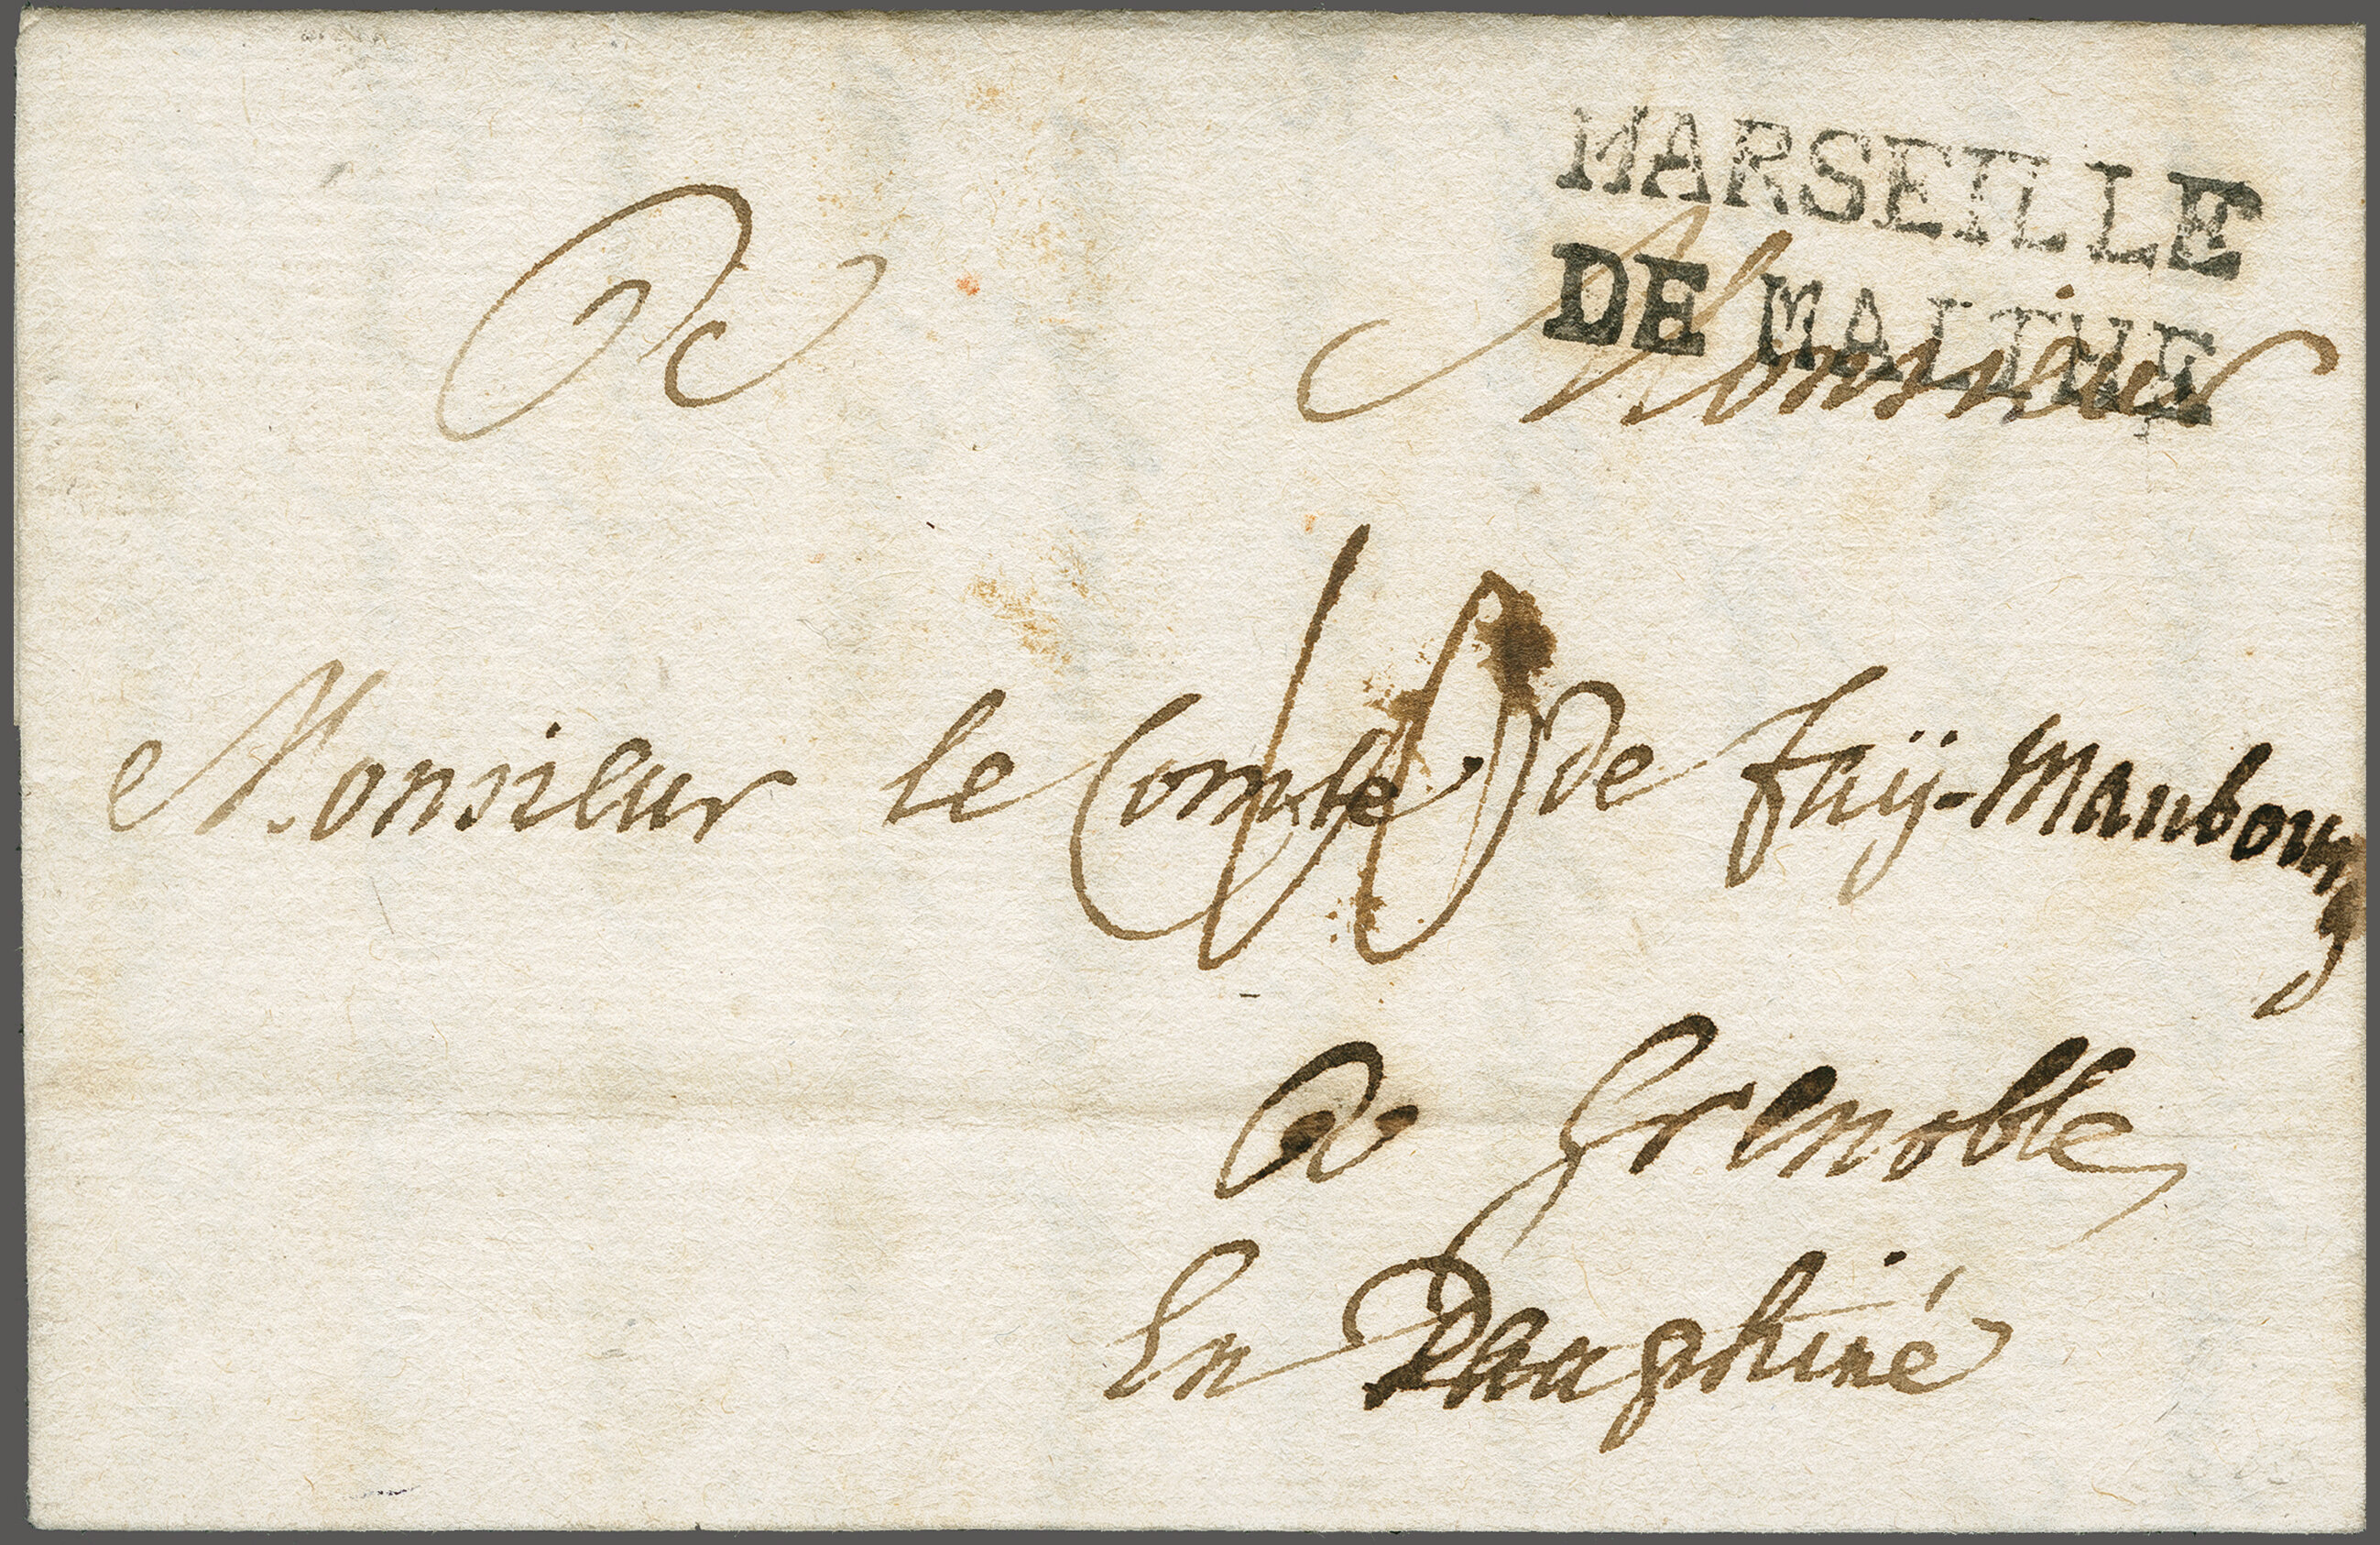 MARSEILLE
DE MALTHE
A Monsieur
Monsieur le Comte de Faÿ-Maubourg
A Grenoble
En Dauphiné